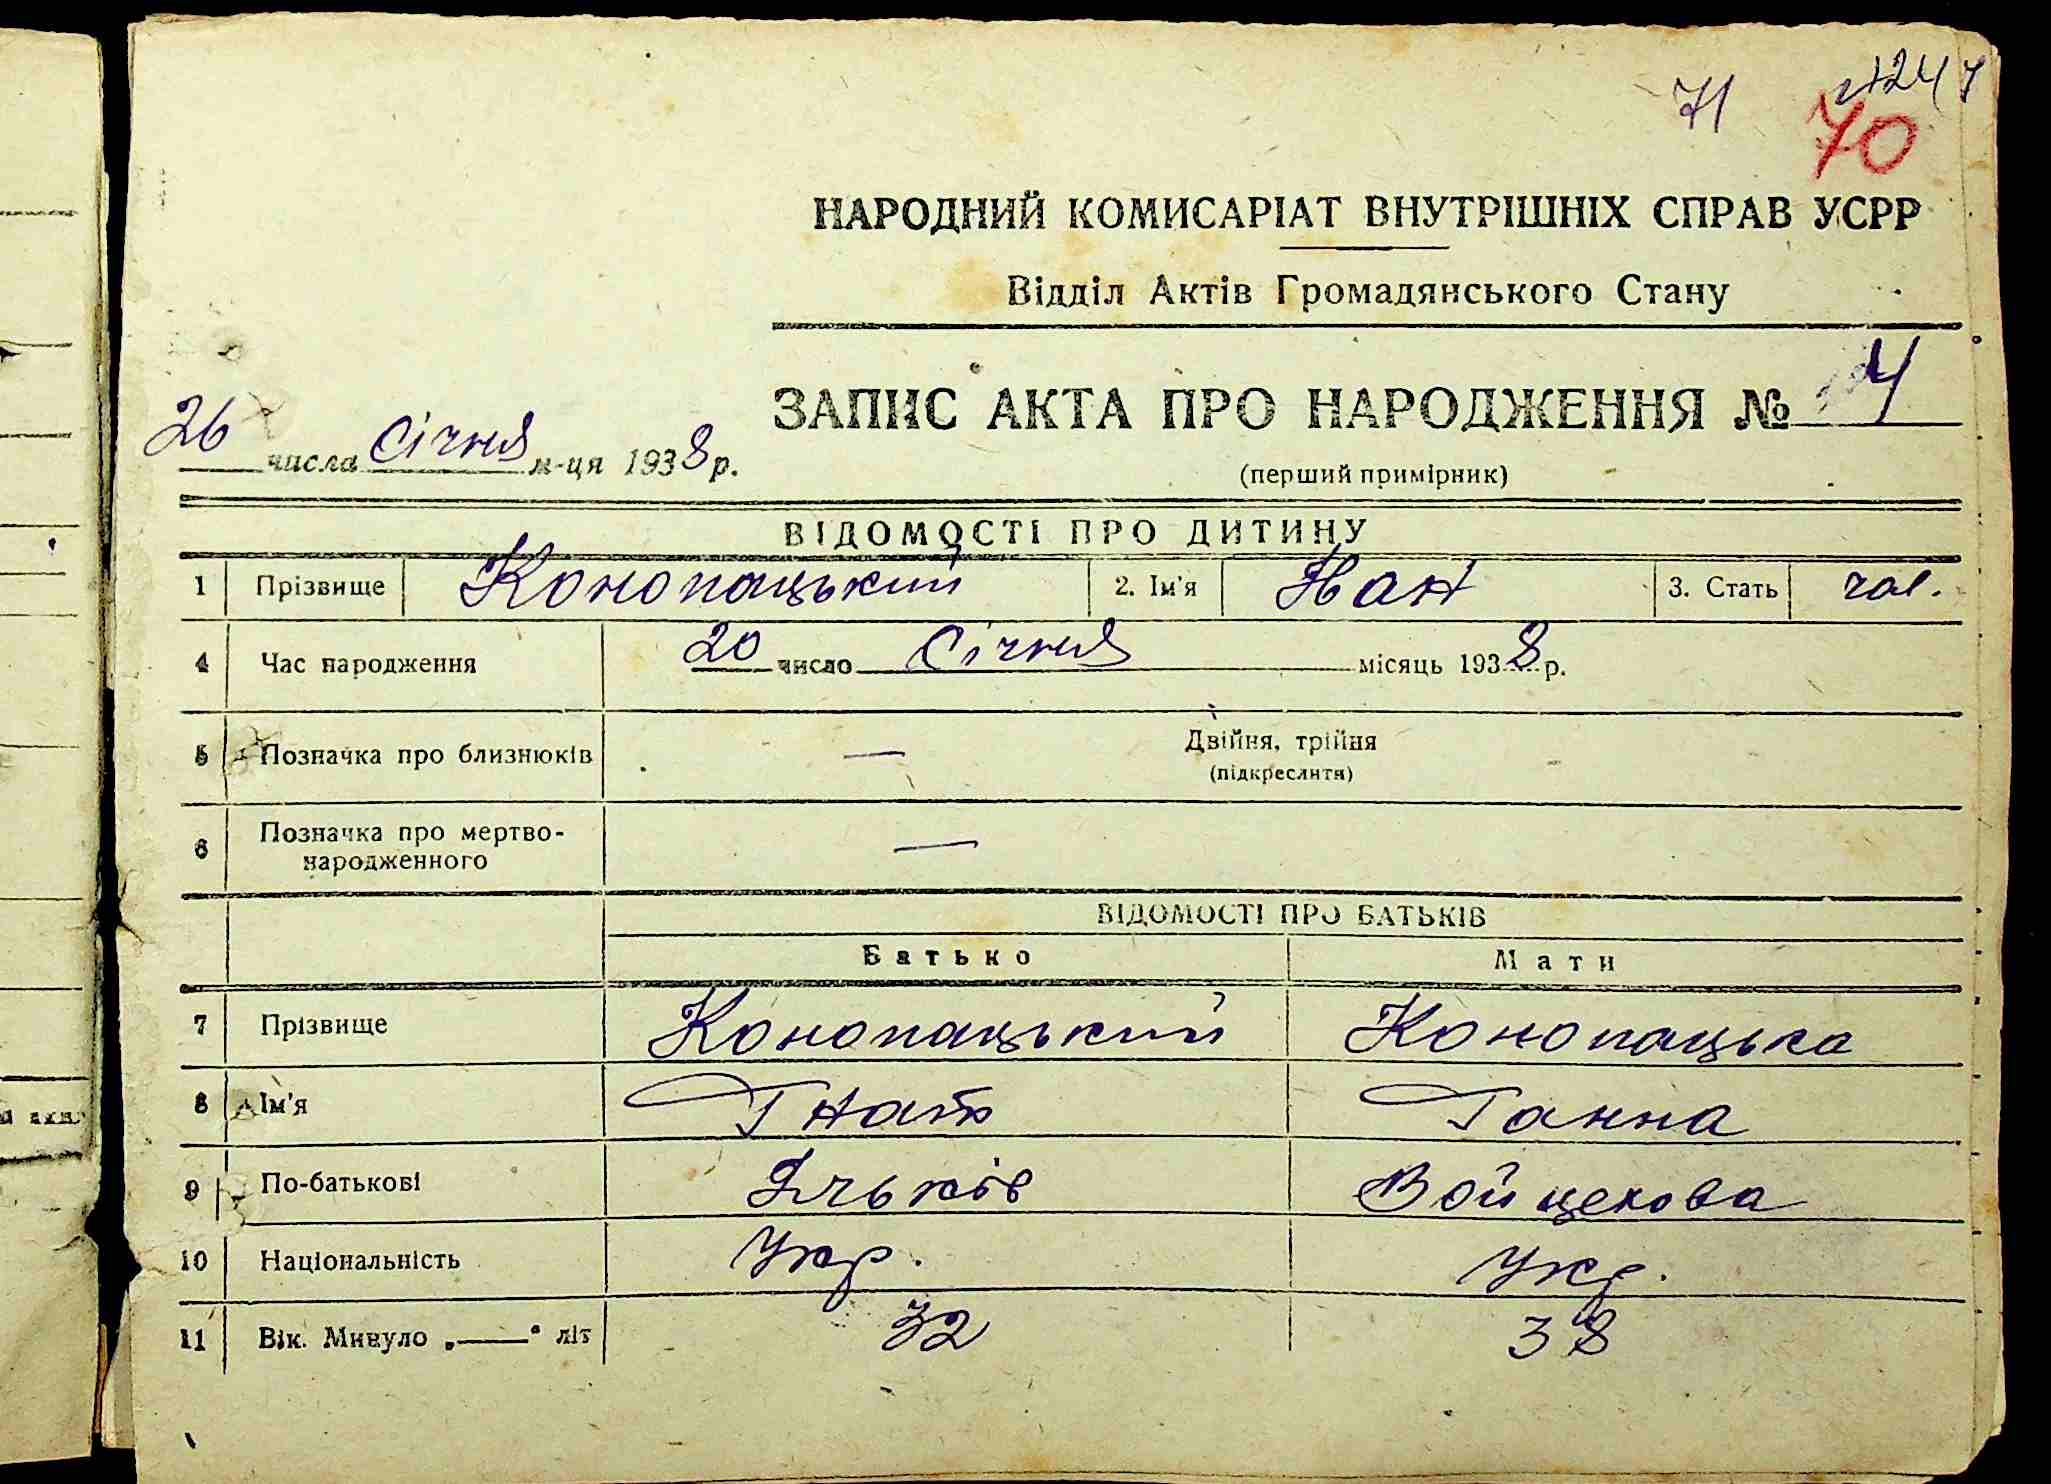 71
70
НАРОДНИЙ КОМИСАРІАТ ВНУТРІШНІХ СПРАВ УСРР
Відділ Актів Громадянського Стану
ЗАПИС АКТА ПРО НАРОДЖЕННЯ №
26 числа січня м-ця 1938 р.
(перший примірник)
ВІДОМОСТІ ПРО ДИТИНУ
1 Прізвище Конопацький 2. Ім'я 3. Стать чол.
4 Час народження 20 число січня місяць 1938 р.
5 Позначка про близнюків — Двійня, трійня
(підкреслити)
6 Позначка про мертво-
народженного —
ВІДОМОСТІ ПРО БАТЬКІВ
Батько Мати
7 Прізвище Конопацький Конопацька
8 Ім'я Гнат Ганна
9 По-батькові Войцехова
10 Національність Укр. Укр.
11 Вік. Минуло „—“ літ 32 38